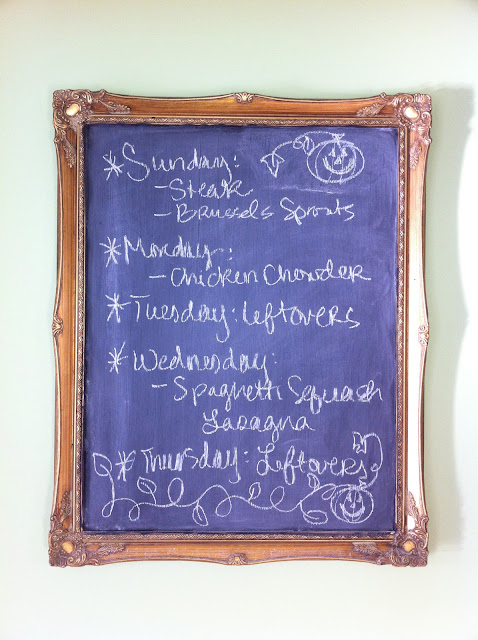 * Sunday:
- Steak
- Brussels Sprouts
* Monday:
- Chicken Chowder
* Tuesday: Leftovers
* Wednesday:
- Spaghetti Squash
Lasagna
* Thursday: Leftovers